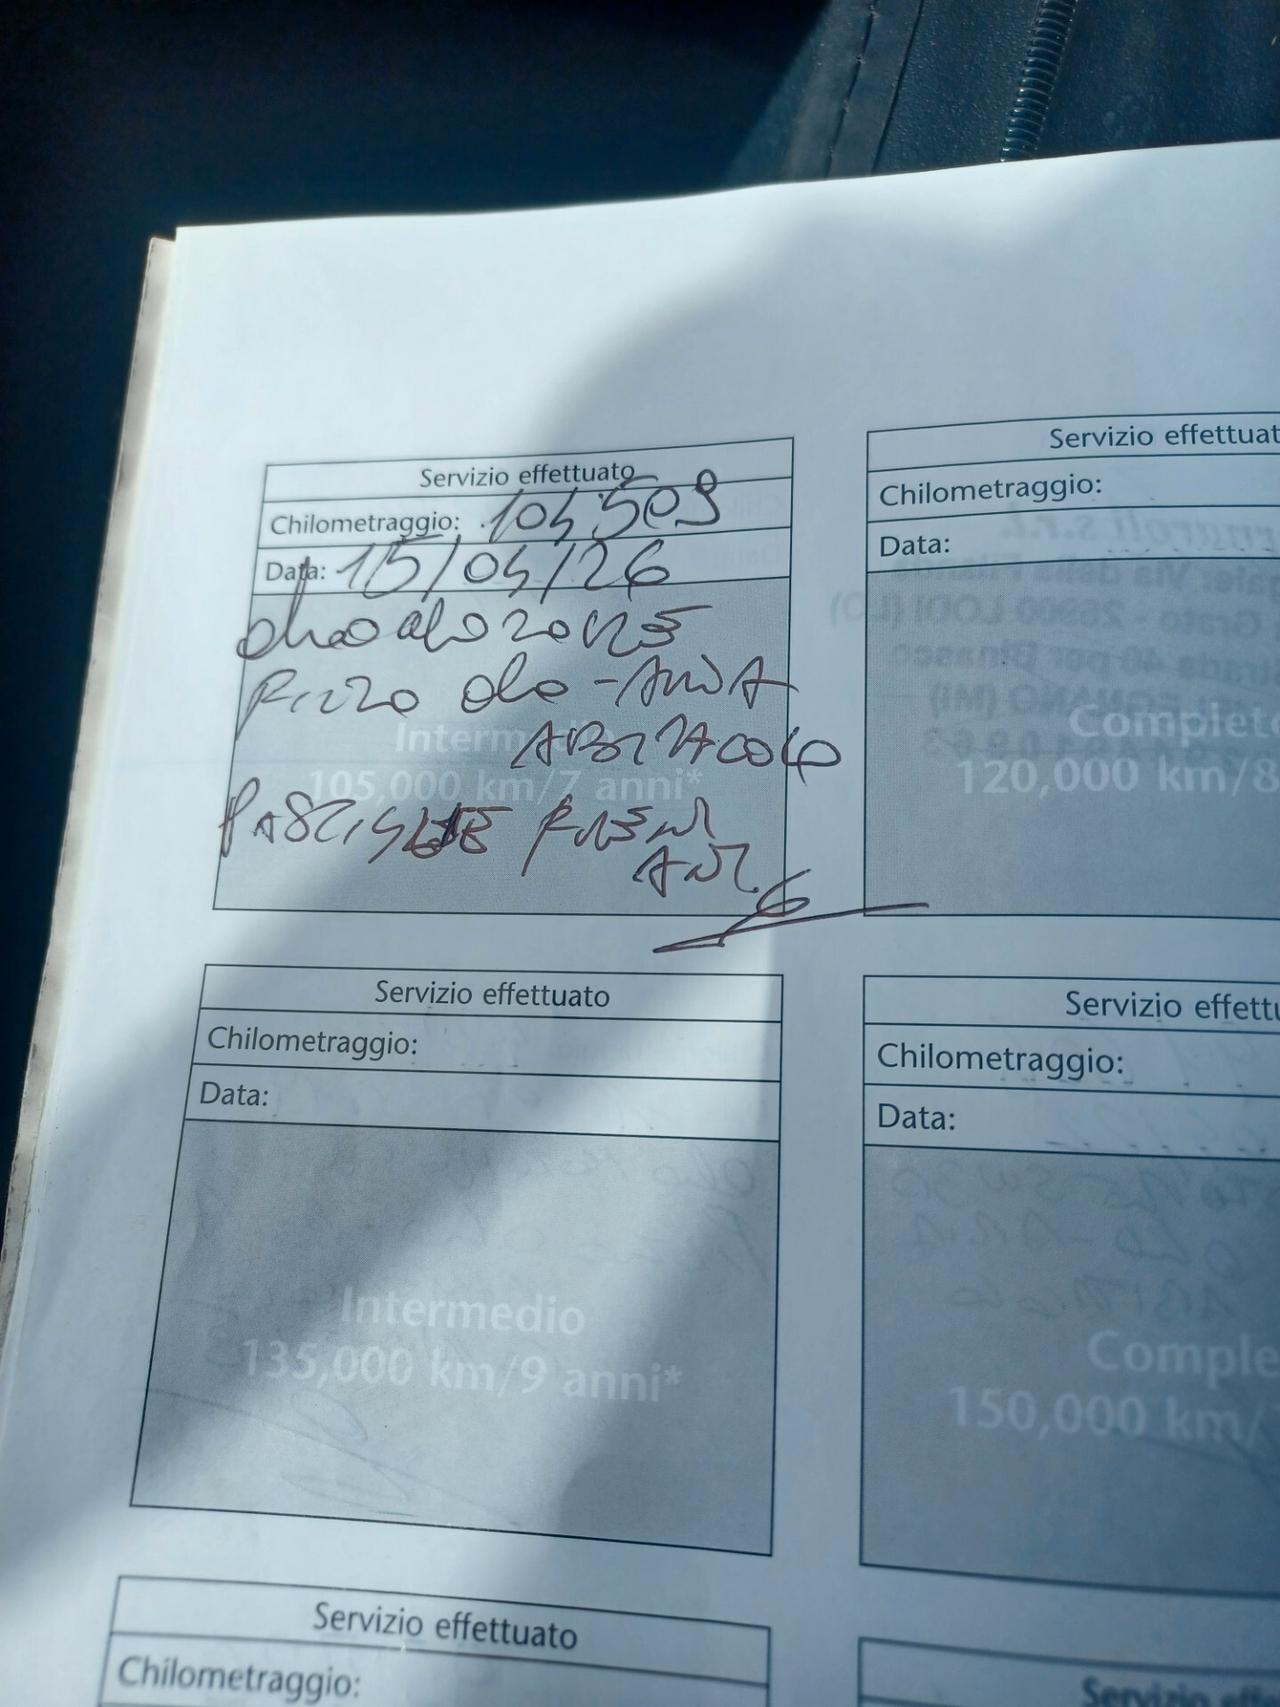 Servizio effettuato
Chilometraggio: 104.509
Data: 15/04/26
olio motore
Filtro olio - ARIA
ABITACOLO
Intermedio
105,000 km/7 anni*
PASTIGLIE FREN
ANT.
Servizio effettuat
Chilometraggio:
Data:
Complet
120,000 km/8
Servizio effettuato
Chilometraggio:
Data:
Intermedio
135,000 km/9 anni*
Servizio effettu
Chilometraggio:
Data:
Comple
150,000 km/
Servizio effettuato
Chilometraggio:
Servizio effe